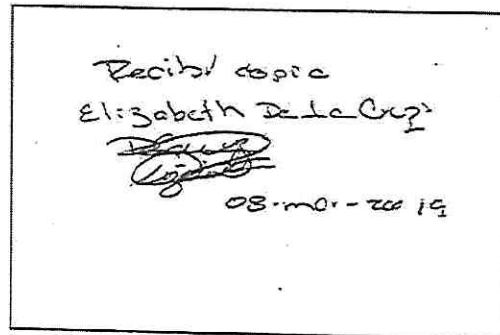 Recibí copia
Elizabeth De La Cruz
08-mar-2019